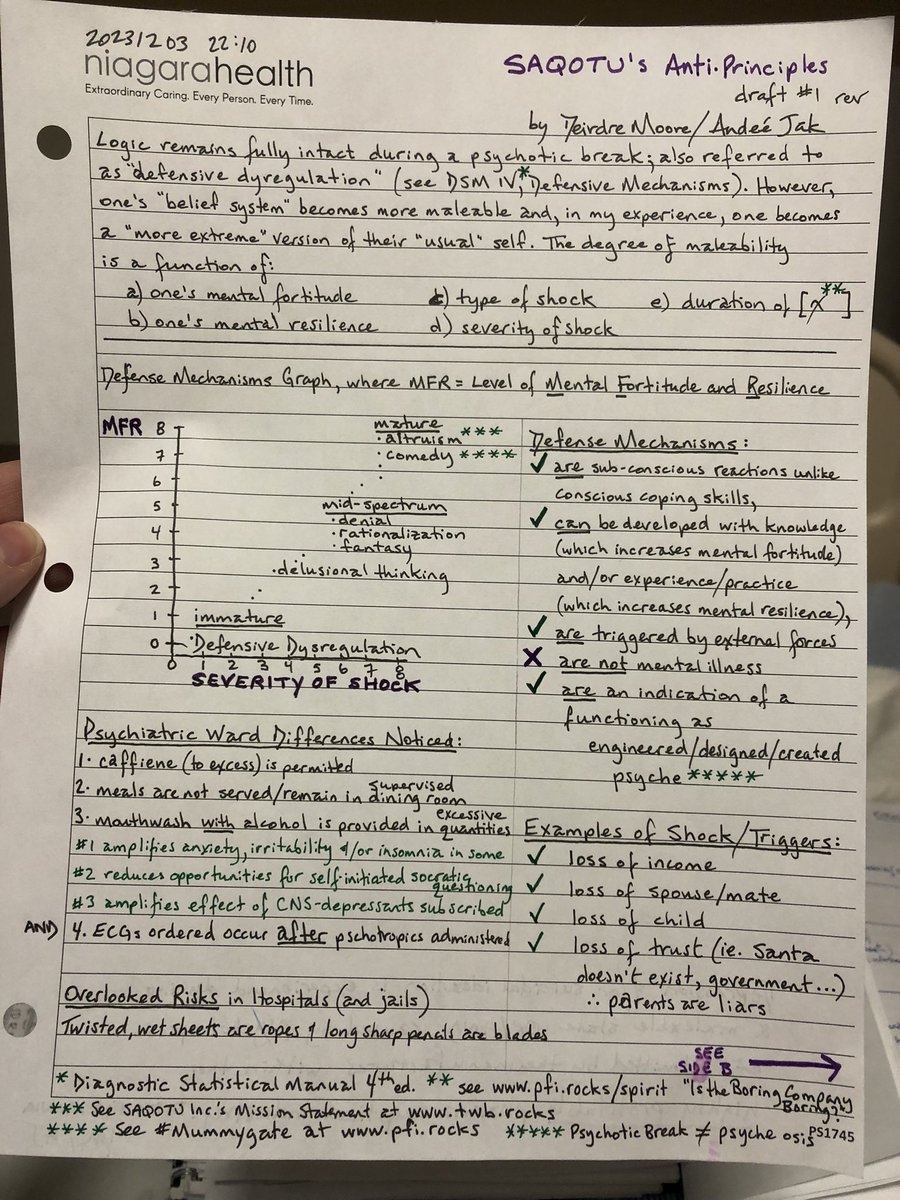 20231203 22:10
niagarahealth
Extraordinary Caring. Every Person. Every Time.
SAQOTU's Anti-Principles
draft #1 rev
by Deirdre Moore/Andeé Jak
Logic remains fully intact during a psychotic break; also referred to
as "defensive dyregulation" (see DSM IV,* Defensive Mechanisms). However,
one's "belief system" becomes more maleable and, in my experience, one becomes
a "more extreme" version of their "usual" self. The degree of maleability
is a function of:
a) one's mental fortitude c) type of shock e) duration of [x**]
b) one's mental resilience d) severity of shock
Defense Mechanisms Graph, where MFR = Level of Mental Fortitude and Resilience
MFR 8
7
6
5
4
3
2
1
0
mature
· altruism ***
· comedy ****
mid-spectrum
· denial
· rationalization
· fantasy
· delusional thinking
immature
· Defensive Dysregulation
0 1 2 3 4 5 6 7 8
SEVERITY OF SHOCK
Defense Mechanisms:
✓ are sub-conscious reactions unlike
conscious coping skills,
✓ can be developed with knowledge
(which increases mental fortitude)
and/or experience/practice
(which increases mental resilience),
✓ are triggered by external forces
X are not mental illness
✓ are an indication of a
functioning as
engineered/designed/created
psyche *****
Psychiatric Ward Differences Noticed:
1. caffiene (to excess) is permitted
2. meals are not served/remain in supervised dining room
3. mouthwash with alcohol is provided in excessive quantities
#1 amplifies anxiety, irritability &/or insomnia in some
#2 reduces opportunities for self-initiated socratic questioning
#3 amplifies effect of CNS-depressants subscribed
AND 4. ECGs ordered occur after pschotropics administered
Examples of Shock/Triggers:
✓ loss of income
✓ loss of spouse/mate
✓ loss of child
✓ loss of trust (ie. Santa
doesn't exist, government...)
∴ parents are liars
Overlooked Risks in Hospitals (and jails)
Twisted, wet sheets are ropes & long sharp pencils are blades
SEE
SIDE B
* Diagnostic Statistical Manual 4th ed. ** see www.pfi.rocks/spirit "Is the Boring Company Boring?"
*** See SAQOTU Inc.'s Mission Statement at www.twb.rocks
**** See #Mummygate at www.pfi.rocks ***** Psychotic Break ≠ psyche osis
PS1745